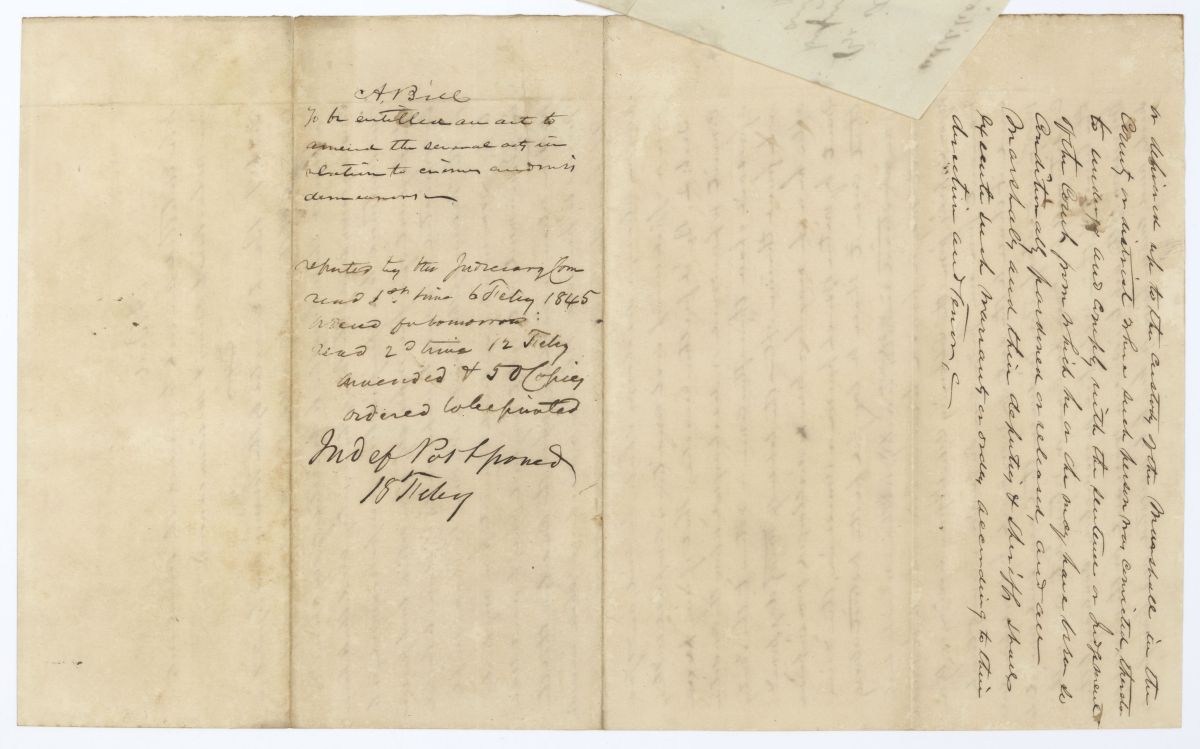 A Bill
To be entitled an act to
amend the several acts in
relation to crimes and mis
demeanors
reported by the Judiciary Com
read 1st time 6 Feby 1845
ordered for tomorrow
read 2d time 12 Feby
amended & 50 Copies
ordered to be printed
Indef Postponed
18 Feby
or delivered up to the custody of the Marshall in the
County or district where such person was convicted, there to
to undergo and comply with the sentence or Judgment
of the Court from which he or she may have been so
Conditionally pardoned or released, and all
Marshalls and their deputies & Sheriffs shall
execute such warrants or orders according to their
direction and tenor